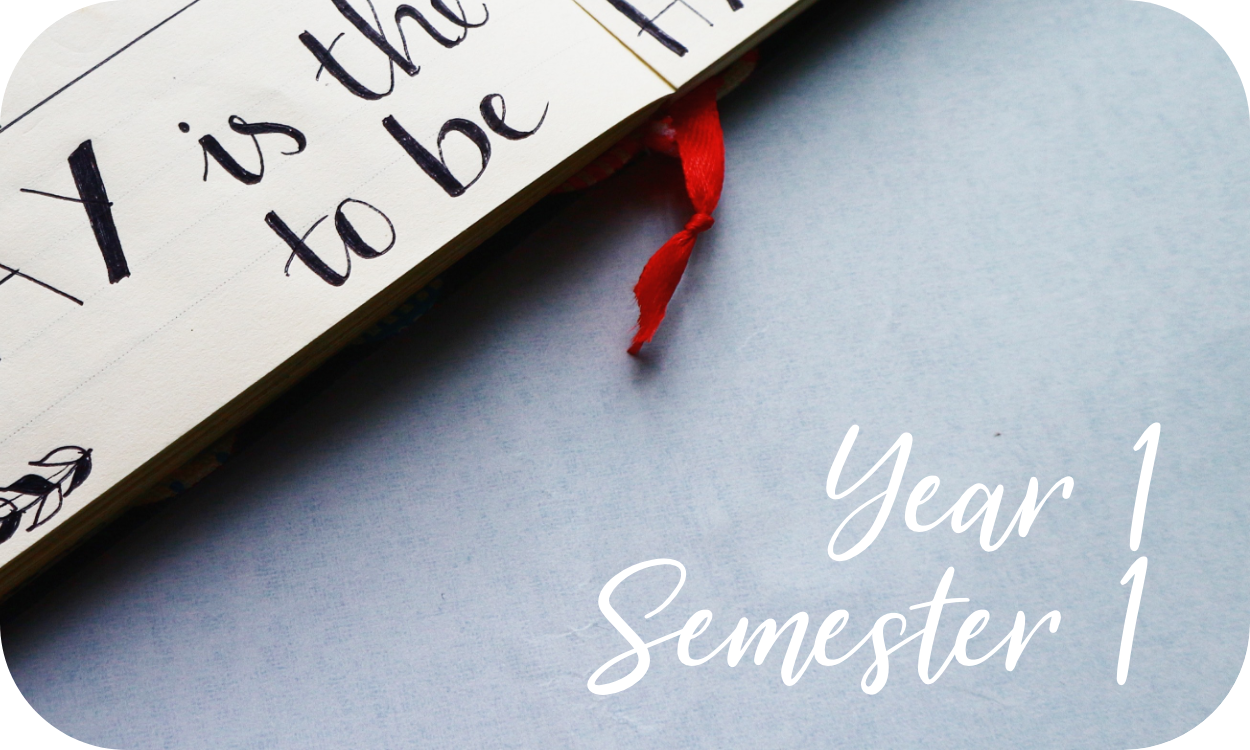 is the
to be
Year 1
Semester 1